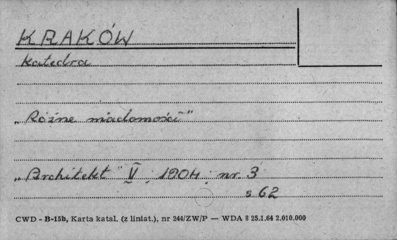 KRAKÓW
Katedra
„Różne wiadomości"
„Architekt" V, 1904, nr. 3
s 62
CWD - B-15b, Karta katal. (z liniat.), nr 244/ZW/P — WDA 8 25.1.64 2.010.000